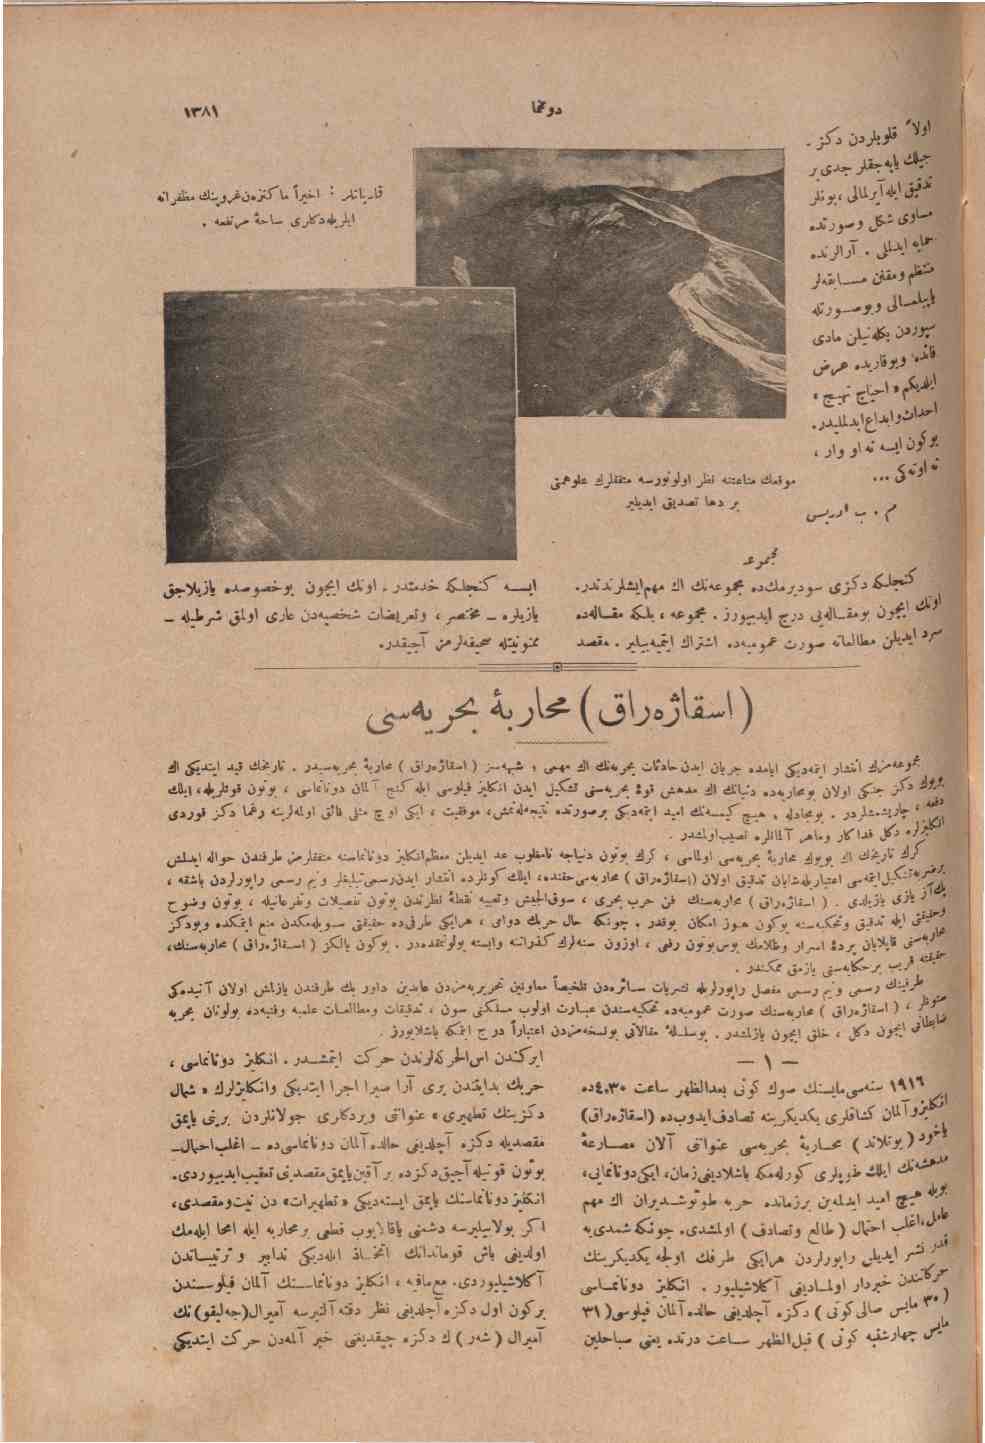 دوننما
١٣٨١
اولاً قلوبلردن دكز -
جيلك ياپه‌جقلر جدى بر
تدقيق ايله آيرلمالى ، بونلر
مساوى شكل وصورتده
حمايه ايدللى . آرالرنده
منتظم ومقنن مسابقه‌لر
ياپيلمالى وبوصورتله
سپوردن بكله‌نيلن مادى
فائده ويوقاريده عرض
ايلديكم « احتياج تهييج »
احداث وابداع ايدلمليدر.
بوكون ايسه نه او وار ،
نه اوته‌كى ...
م . ب ادريس
قارپاتلر : اخيراً ماكنزه‌ن غروپنك مظفرانه
ايلريله‌دكلرى ساحهٔ مرتفعه .
موقعك مناعتنه نظر اولونورسه متفقلرك علوهمتى
بر دها تصديق ايديلير
مجموعه
كنجلكه دكزى سوديرمك‌ده مجموعه‌نك اك مهم ايشلرندندر.
اونك ايچون بومقاله‌يى درج ايدييورز . مجموعه ، بلكه مقاله‌ده
سرد ايديلن مطالعاته صورت عموميه‌ده اشتراك ايتميه‌بيلير . مقصد
ايسه كنجلكه خدمتدر . اونك ايچون بوخصوصده يازيلاجق
يازيلره _ مختصر ، وتعريضات شخصيه‌دن عارى اولمق شرطيله _
ممنونيتله صحيفه‌لرمز آچيقدر.
( اسقاژه‌راق ) محاربهٔ بحريه‌سى
مجموعه‌مزك انتشار ايتمه‌ديكى ايامده جريان ايدن حادثات بحريه‌نك اك مهمى ، شبهه‌سز ( اسقاژه‌راق ) محاربهٔ بحريه‌سيدر . تاريخك قيد ايتديكى اك
بويوك دكز جنكى اولان بومحاربه‌ده دنيانك اك مدهش قوهٔ بحريه‌سنى تشكيل ايدن انكليز فيلوسى ايله كنج آلمان دونانماسى ، بوتون قوتلريله ، ايلك
دفعه ، چارپيشمشلردر . بومجادله ، هيچ كيمسه‌نك اميد ايتمه‌ديكى برصورتده نتيجه‌لنمش ، موفقيت ، ايكى اوچ مثلى فائق اولمه‌لرينه رغماً دكز قوردى
انكليزلره دكل فداكار وماهر آلمانلره نصيب اولمشدر .
كرك تاريخك اك بويوك محاربهٔ بحريه‌سى اولماسى ، كرك بوتون دنياجه نامغلوب عد ايديلن معظم انكليز دونانماسنه متفقلرمز طرفندن حواله ايدلمش
برضربه تشكيل ايتمه‌سى اعتباريله شايان تدقيق اولان ( اسقاژه‌راق ) محاربه‌سى حقنده ، ايلك كونلرده انتشار ايدن رسمى تبليغلر ونيم رسمى راپورلردن باشقه ،
پك آز يازى يازيلدى . ( اسقاژه‌راق ) محاربه‌سنك فن حرب بحرى ، سوق‌الجيش وتعبيه نقطهٔ نظرندن بوتون تفصيلات وتفرعاتيله ، بوتون وضوح
وحقيقتى ايله تدقيق وتحكيه‌سنه بوكون هنوز امكان يوقدر . چونكه حال حربك دوامى ، هرايكى طرفى‌ده حقيقتى سويله‌مكدن منع ايتمكده وبودكز
محاربه‌سنى قاپلايان پردهٔ اسرار وظلامك بوس‌بوتون رفعى ، اوزون سنه‌لرك كذراننه وابسته بولونمقده‌در . بوكون يالكز ( اسقاژه‌راق ) محاربه‌سنك ،
حقيقته قريب برحكايه‌سنى يازمق ممكندر .
طرفينك رسمى ونيم رسمى مفصل راپورلريله نشريات سائره‌دن تلخيصاً معاونين تحريريه‌مزدن عابدين داور بك طرفندن يازلمش اولان آتيده‌كى
سطرلر ، ( اسقاژه‌راق ) محاربه‌سنك صورت عموميه‌ده تحكيه‌سندن عبارت اولوب مسلكنى سون ، تدقيقات ومطالعات علميه وفنيه‌ده بولونان بحريه
ضابطانى ايچون دكل ، خلق ايچون يازلمشدر . بوسلسلهٔ مقالاتى بونسخه‌مزدن اعتباراً درج ايتمكه باشلايورز .
— ١ —
١٩١٦ سنه‌سى مايسنك صوك كونى بعدالظهر ساعت ٤،٣٠ده
انكليز وآلمان كشافلرى يكديكرينه تصادف ايدوب‌ده (اسقاژه‌راق)
ياخود ( يوتلاند ) محاربهٔ بحريه‌سى عنواننى آلان مصارعهٔ
مدهشه‌نك ايلك طوپلرى كورله‌مكه باشلاديغى زمان ، ايكى دونانمايى ،
بويله هيچ اميد ايدلمه‌ين برزمانده حربه طوتوشديران اك مهم
عامل ، اغلب احتمال ( طالع وتصادف ) اولمشدى. چونكه شمدى‌يه
قدر نشر ايديلن راپورلردن هرايكى طرفك اولجه يكديكرينك
حركاتندن خبردار اولماديغى آكلاشيليور . انكليز دونانماسى
( ٣٠ مايس صالى كونى ) دكزه آچلديغى حالده آلمان فيلوسى ( ٣١
مايس چهارشنبه كونى ) قبل‌الظهر ساعت درتده يعنى صباحلين
ايركندن اس‌الحركه‌لرندن حركت ايتمشدر . انكليز دونانماسى ،
حربك بدايتندن برى آرا صيرا اجرا ايتديكى وانكليزلرك « شمال
دكزينك تطهيرى » عنواننى ويردكلرى جولانلردن برينى ياپمق
مقصديله دكزه آچلديغى حالده آلمان دونانماسى‌ده _ اغلب احتمال_
بوتون قوتيله آچيق دكزده بر آقين ياپمق مقصدينى تعقيب ايدييوردى.
انكليز دونانماسنك ياپمق ايسته‌ديكى « تطهيرات » دن نيت ومقصدى،
اكر بولابيليرسه دشمنى ياقالايوب قطعى برمحاربه ايله امحا ايله‌مك
اولديغى باش قوماندانك اتخاذ ايله‌ديكى تدابير و ترتيباتدن
آكلاشيليوردى. مع‌مافيه ، انكليز دونانماسنك آلمان فيلوسندن
بركون اول دكزه آچلديغى نظر دقته آلنيرسه آميرال (جه‌ليقو) نك
آميرال ( شه‌ر ) ك دكزه چيقديغنى خبر آلمه‌دن حركت ايتديكى